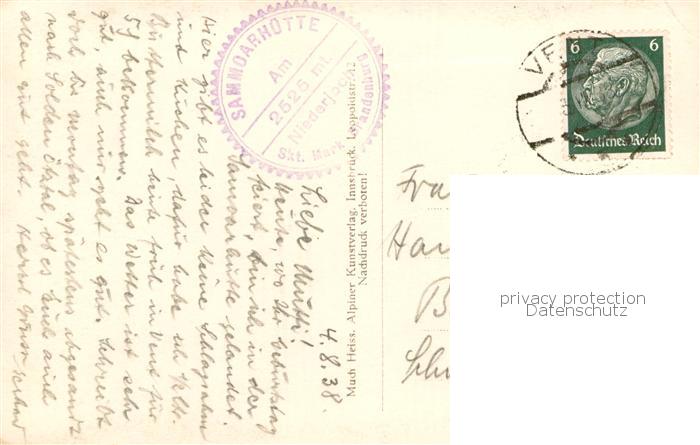 4.8.38.
Liebe Mutti!
Heute, wo Ihr Geburtstag
feiert, bin ich in der
Samoarhütte gelandet.
Hier gibt es leider keine Schlagsahne
und Kuchen, dafür habe ich
Buttermilch heute früh in Vent für
5 bekommen. Das Wetter ist sehr
gut, auch mir geht es gut. Schreibt
doch bis Montag spätestens abgesandt
nach Sölden Ötztal, ob es Euch auch
allen gut geht. Herzl. Gruss
SAMMOARHÜTTE
Am
2525 mt.
Niederjoch
Skt. Mark Brandenburg
Much Heiss. Alpiner Kunstverlag. Innsbruck, Leopoldstr. 12
Nachdruck verboten!
6 6
Deutsches Reich
VE
Fra
Ha
B
privacy protection
Datenschutz